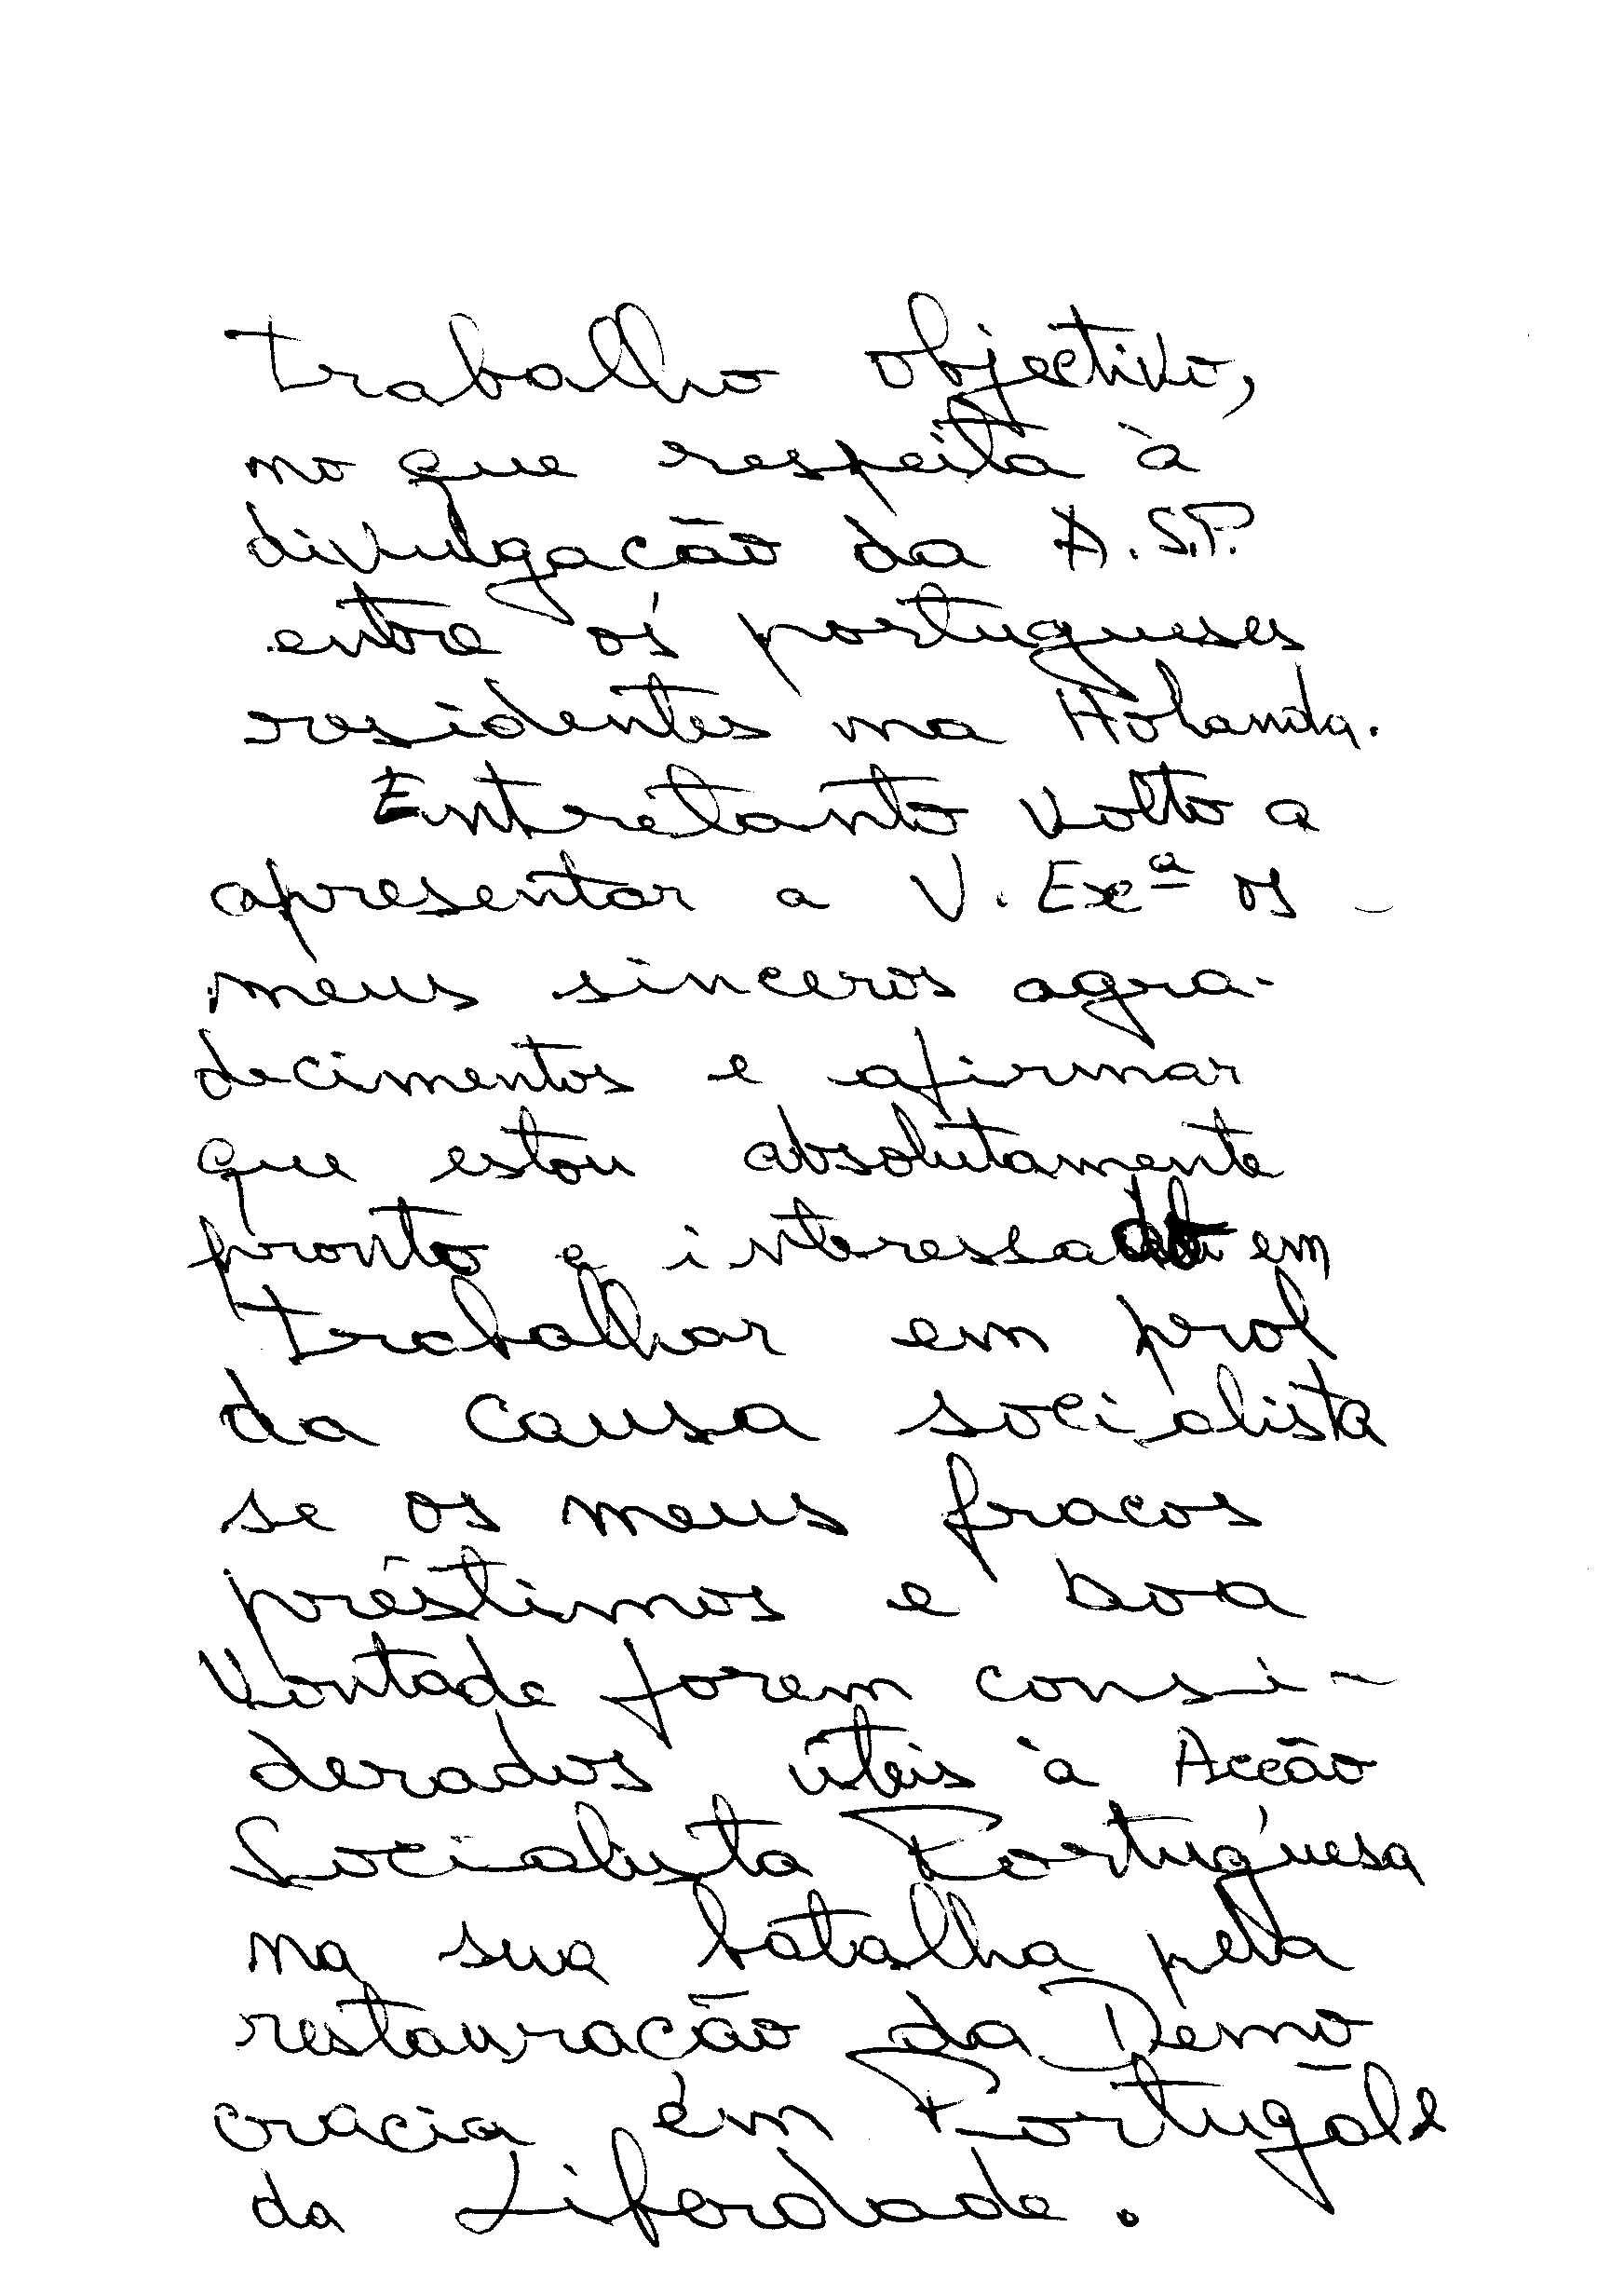 trabalho objectivo,
no que respeita à
divulgação da A.S.P.
entre os portugueses
residentes na Holanda.
Entretanto volto a
apresentar a V. Exª os -
meus sinceros agra-
decimentos e afirmar
que estou absolutamente
pronto e interessado em
trabalhar em prol
da causa socialista
se os meus fracos
préstimos e boa
vontade forem consi-
derados úteis à Acção
Socialista Portuguesa
na sua batalha pela
restauração da Demo
cracia em Portugal e
da Liberdade.